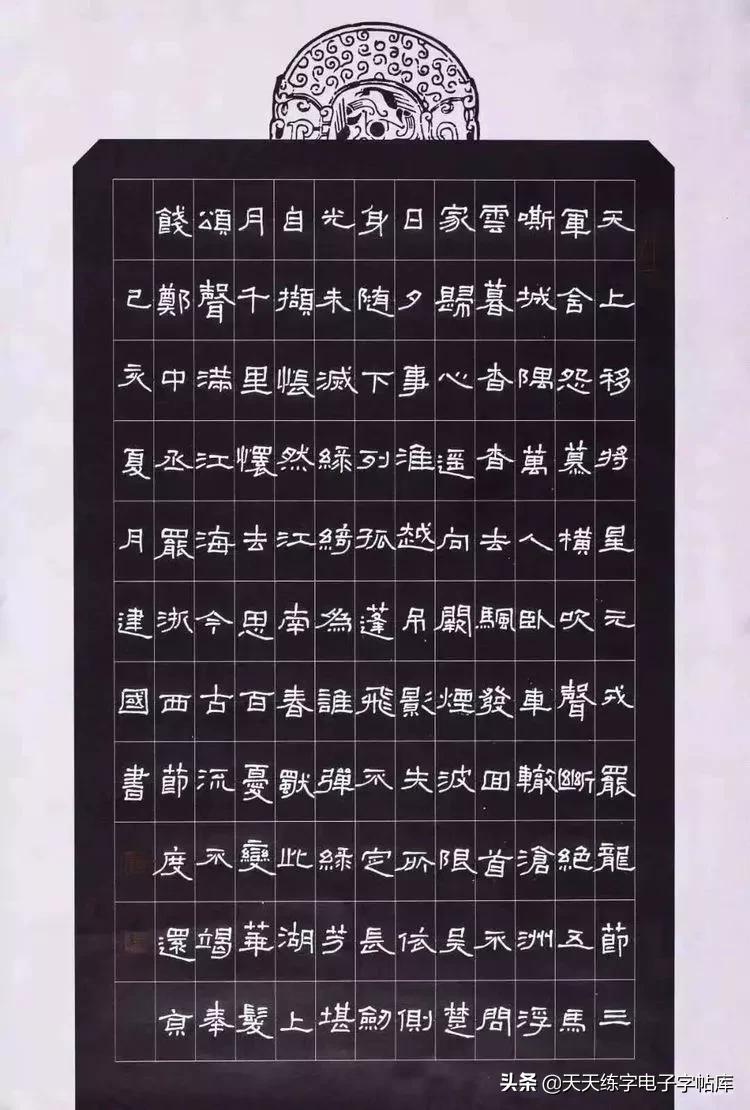 天上移将星元戎罷龍節三
軍舍怨慕横吹聲斷絕五馬
嘶城隅萬人卧車轍滄洲浮
雲暮杳杳去颿發回首不問
家歸心遥向闕煙波限吳楚
日夕事淮越吊影失所依側
身随下列孤蓬飛不定長劒
光未滅綠綺為誰彈綠芳堪
自擷悵然江南春獨此湖上
月千里懷去思百憂變華髮
頌聲滿江海今古流不竭奉
餞鄭中丞罷浙西節度還京
己亥夏月建國書
头条 @天天练字电子字帖库